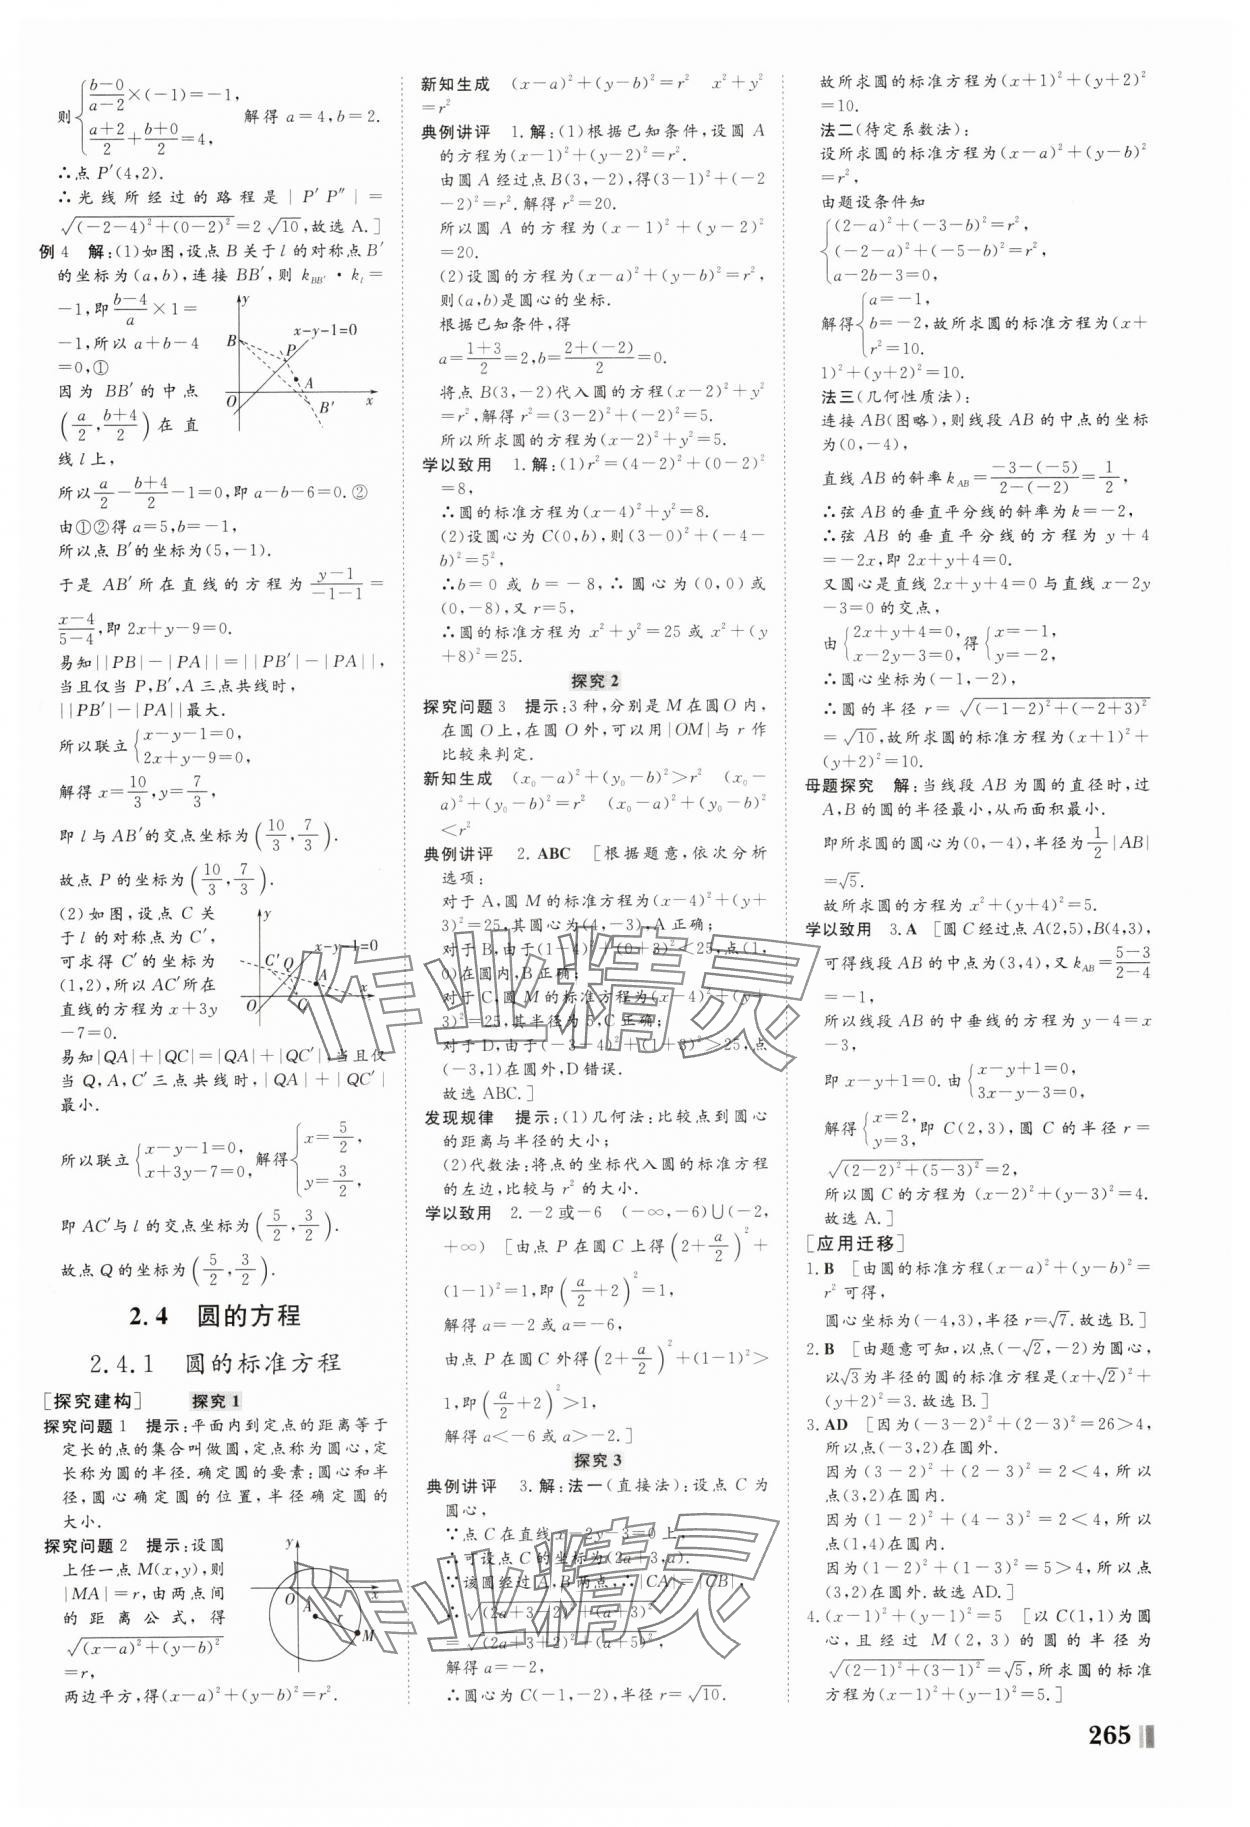 则{(b-0)/(a-2)×(-1)=-1, (a+2)/2+(b+0)/2=4, 解得 a=4,b=2.
∴点 P′(4,2).
∴光线所经过的路程是|P′P″|=
√((-2-4)²+(0-2)²)=2√10,故选 A.]
例 4 解:(1)如图,设点 B 关于 l 的对称点 B′
的坐标为(a,b),连接 BB′,则 k_BB′·k_l=
-1,即(b-4)/a×1=
-1,所以 a+b-4
=0,①
因为 BB′的中点
(a/2,(b+4)/2)在直
线 l 上,
所以 a/2-(b+4)/2-1=0,即 a-b-6=0.②
由①②得 a=5,b=-1,
所以点 B′的坐标为(5,-1).
于是 AB′所在直线的方程为(y-1)/(-1-1)=
(x-4)/(5-4),即 2x+y-9=0.
易知||PB|-|PA||=||PB′|-|PA||,
当且仅当 P,B′,A 三点共线时,
||PB′|-|PA||最大.
所以联立{x-y-1=0, 2x+y-9=0,
解得 x=10/3,y=7/3,
即 l 与 AB′的交点坐标为(10/3,7/3).
故点 P 的坐标为(10/3,7/3).
(2)如图,设点 C 关
于 l 的对称点为 C′,
可求得 C′的坐标为
(1,2),所以 AC′所在
直线的方程为 x+3y
-7=0.
易知|QA|+|QC|=|QA|+|QC′|,当且仅
当 Q,A,C′三点共线时,|QA|+|QC′|
最小.
所以联立{x-y-1=0, x+3y-7=0, 解得{x=5/2, y=3/2,
即 AC′与 l 的交点坐标为(5/2,3/2).
故点 Q 的坐标为(5/2,3/2).
y
x-y-1=0
B
P
A
O
B′
x
y
x-y-1=0
C′
Q
A
O
C
x
2.4 圆的方程
2.4.1 圆的标准方程
[探究建构] 探究 1
探究问题 1 提示:平面内到定点的距离等于
定长的点的集合叫做圆,定点称为圆心,定
长称为圆的半径.确定圆的要素:圆心和半
径,圆心确定圆的位置,半径确定圆的
大小.
探究问题 2 提示:设圆
上任一点 M(x,y),则
|MA|=r,由两点间
的距离公式,得
√((x-a)²+(y-b)²)
=r,
两边平方,得(x-a)²+(y-b)²=r².
y
O
x
A
r
M
新知生成 (x-a)²+(y-b)²=r² x²+y²
=r²
典例讲评 1.解:(1)根据已知条件,设圆 A
的方程为(x-1)²+(y-2)²=r².
由圆 A 经过点 B(3,-2),得(3-1)²+(-2
-2)²=r².解得 r²=20.
所以圆 A 的方程为(x-1)²+(y-2)²
=20.
(2)设圆的方程为(x-a)²+(y-b)²=r²,
则(a,b)是圆心的坐标.
根据已知条件,得
a=(1+3)/2=2,b=(2+(-2))/2=0.
将点 B(3,-2)代入圆的方程(x-2)²+y²
=r²,解得 r²=(3-2)²+(-2)²=5.
所以所求圆的方程为(x-2)²+y²=5.
学以致用 1.解:(1)r²=(4-2)²+(0-2)²
=8,
∴圆的标准方程为(x-4)²+y²=8.
(2)设圆心为 C(0,b),则(3-0)²+(-4-
b)²=5²,
∴b=0 或 b=-8,∴圆心为(0,0)或
(0,-8),又 r=5,
∴圆的标准方程为 x²+y²=25 或 x²+(y
+8)²=25.
探究 2
探究问题 3 提示:3 种,分别是 M 在圆 O 内,
在圆 O 上,在圆 O 外,可以用|OM|与 r 作
比较来判定.
新知生成 (x₀-a)²+(y₀-b)²>r² (x₀-
a)²+(y₀-b)²=r² (x₀-a)²+(y₀-b)²
<r²
典例讲评 2.ABC [根据题意,依次分析
选项:
对于 A,圆 M 的标准方程为(x-4)²+(y+
3)²=25,其圆心为(4,-3),A 正确;
对于 B,由于(1-4)²+(0+3)²<25,点(1,
0)在圆内,B 正确;
对于 C,圆 M 的标准方程为(x-4)²+(y+
3)²=25,其半径为 5,C 正确;
对于 D,由于(-3-4)²+(1+3)²>25,点
(-3,1)在圆外,D 错误.
故选 ABC.]
发现规律 提示:(1)几何法:比较点到圆心
的距离与半径的大小;
(2)代数法:将点的坐标代入圆的标准方程
的左边,比较与 r²的大小.
学以致用 2.-2 或-6 (-∞,-6)∪(-2,
+∞) [由点 P 在圆 C 上得(2+a/2)²+
(1-1)²=1,即(a/2+2)²=1,
解得 a=-2 或 a=-6,
由点 P 在圆 C 外得(2+a/2)²+(1-1)²>
1,即(a/2+2)²>1,
解得 a<-6 或 a>-2.]
探究 3
典例讲评 3.解:法一(直接法):设点 C 为
圆心,
∵点 C 在直线 x-2y-3=0 上,
∴可设点 C 的坐标为(2a+3,a).
∵该圆经过 A,B 两点,∴|CA|=|CB|,
∴√((2a+3-2)²+(a+3)²)
=√((2a+3+2)²+(a+5)²),
解得 a=-2,
∴圆心为 C(-1,-2),半径 r=√10.
故所求圆的标准方程为(x+1)²+(y+2)²
=10.
法二(待定系数法):
设所求圆的标准方程为(x-a)²+(y-b)²
=r²,
由题设条件知
{(2-a)²+(-3-b)²=r²,
(-2-a)²+(-5-b)²=r²,
a-2b-3=0,
解得{a=-1, b=-2, r²=10. 故所求圆的标准方程为(x+
1)²+(y+2)²=10.
法三(几何性质法):
连接 AB(图略),则线段 AB 的中点的坐标
为(0,-4),
直线 AB 的斜率 k_AB=(-3-(-5))/(2-(-2))=1/2,
∴弦 AB 的垂直平分线的斜率为 k=-2,
∴弦 AB 的垂直平分线的方程为 y+4
=-2x,即 2x+y+4=0.
又圆心是直线 2x+y+4=0 与直线 x-2y
-3=0 的交点,
由{2x+y+4=0, x-2y-3=0, 得{x=-1, y=-2,
∴圆心坐标为(-1,-2),
∴圆的半径 r=√((-1-2)²+(-2+3)²)
=√10,故所求圆的标准方程为(x+1)²+
(y+2)²=10.
母题探究 解:当线段 AB 为圆的直径时,过
A,B 的圆的半径最小,从而面积最小.
即所求圆的圆心为(0,-4),半径为 1/2|AB|
=√5.
故所求圆的方程为 x²+(y+4)²=5.
学以致用 3.A [圆 C 经过点 A(2,5),B(4,3),
可得线段 AB 的中点为(3,4),又 k_AB=(5-3)/(2-4)
=-1,
所以线段 AB 的中垂线的方程为 y-4=x
-3,
即 x-y+1=0.由{x-y+1=0, 3x-y-3=0,
解得{x=2, y=3, 即 C(2,3),圆 C 的半径 r=
√((2-2)²+(5-3)²)=2,
所以圆 C 的方程为(x-2)²+(y-3)²=4.
故选 A.]
[应用迁移]
1.B [由圆的标准方程(x-a)²+(y-b)²=
r²可得,
圆心坐标为(-4,3),半径 r=√7.故选 B.]
2.B [由题意可知,以点(-√2,-2)为圆心,
以√3为半径的圆的方程是(x+√2)²+
(y+2)²=3.故选 B.]
3.AD [因为(-3-2)²+(2-3)²=26>4,
所以点(-3,2)在圆外.
因为(3-2)²+(2-3)²=2<4,所以
点(3,2)在圆内.
因为(1-2)²+(4-3)²=2<4,所以
点(1,4)在圆内.
因为(1-2)²+(1-3)²=5>4,所以点
(3,2)在圆外.故选 AD.]
4.(x-1)²+(y-1)²=5 [以 C(1,1)为圆
心,且经过 M(2,3)的圆的半径为
√((2-1)²+(3-1)²)=√5,所求圆的标准
方程为(x-1)²+(y-1)²=5.]
265
作业精灵
作业精灵